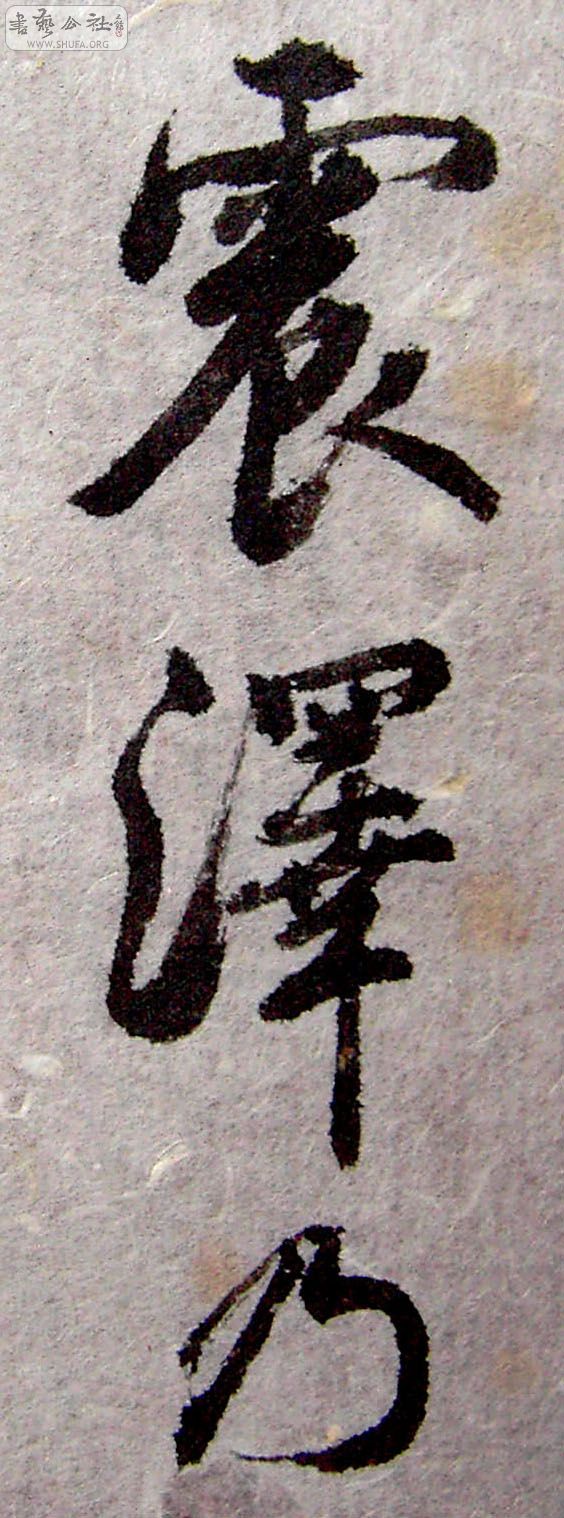 書藝公社
WWW.SHUFA.ORG
震澤乃